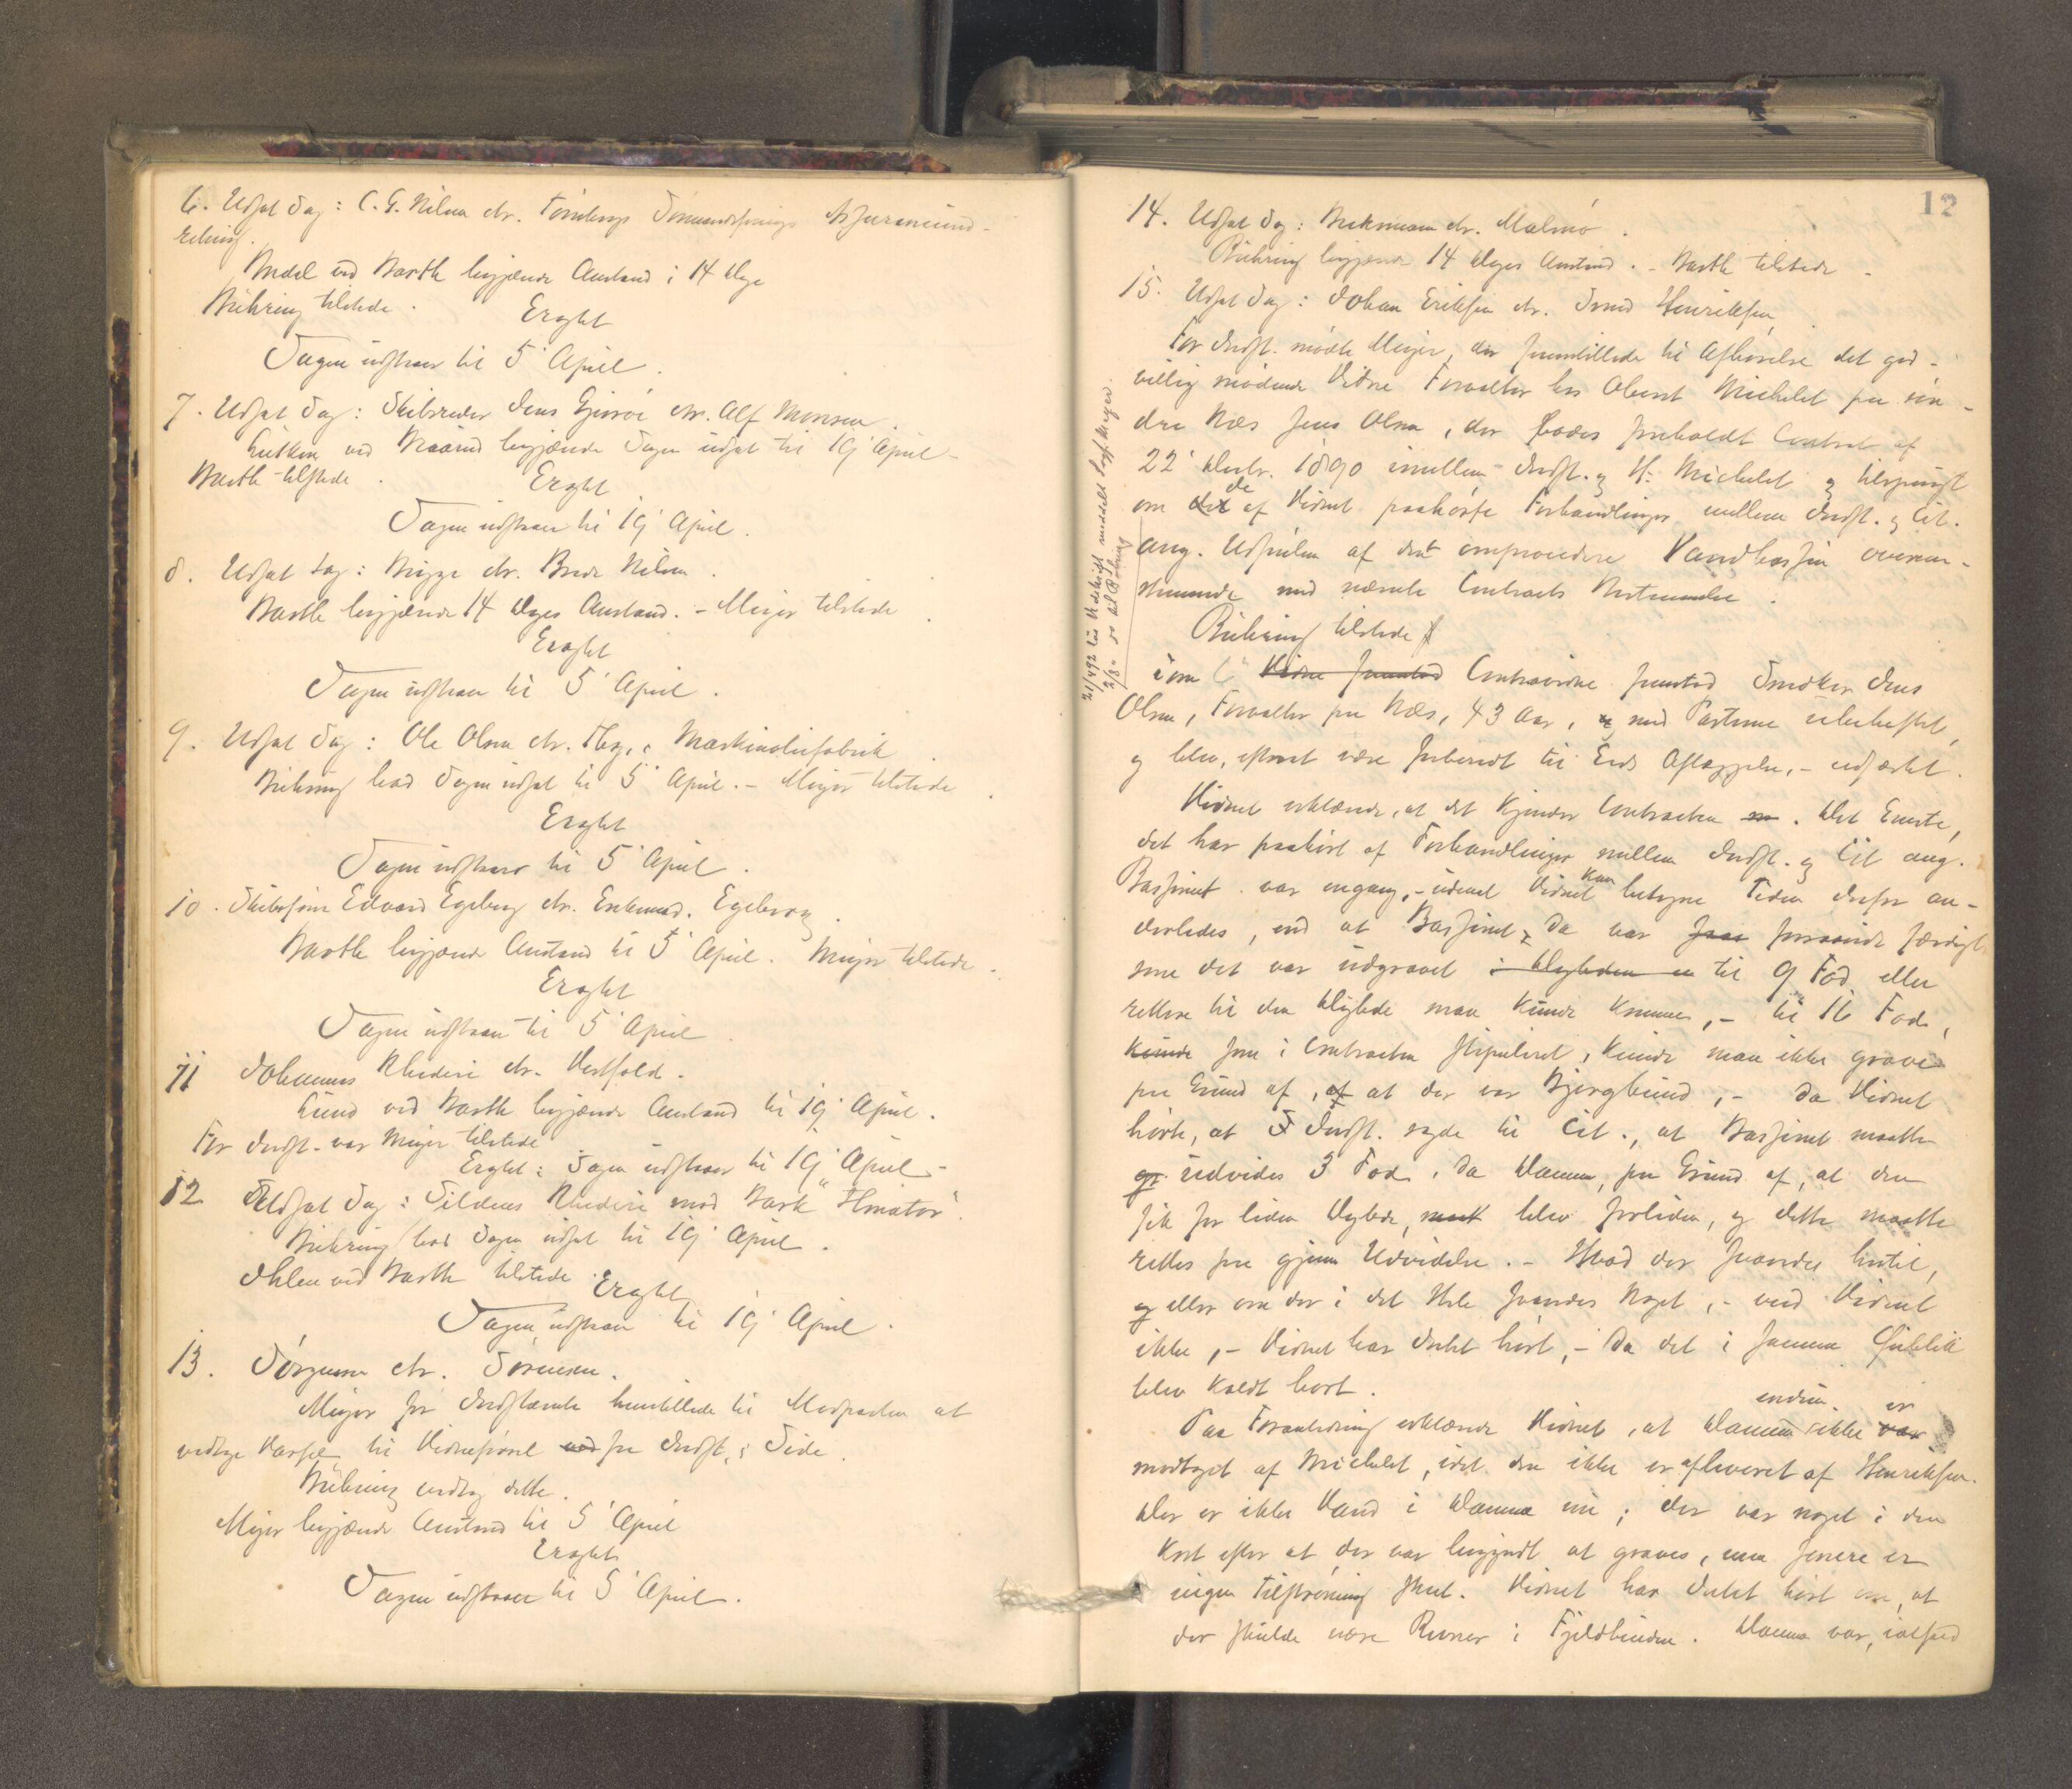 6. Udsat Sag: C. G. Nilsen ctr. Tönsbergs Sömandsforenings Assuranceind-
retning.
Bredal ved Barth begjærede Anstand i 14 Dage
Bühring tilstede.
Eragtet
Sagen udstaar til 5' April.
7. Udsat Sag: Skibsreder Jens Gjersöe ctr. Alf Monsen.
Lütken ved Naarud begjærede Sagen udsat til 19' April-
Barth tilstede.
Eragtet
Sagen udstaar til 19' April.
8. Udsat Sag: Brygge ctr. Brede Nilsen.
Barth begjærede 14 Dages Anstand. - Meyer tilstede.
Eragtet
Sagen udstaar til 5' April.
9. Udsat Sag: Ole Olsen ctr. Tbg.s Maskinoliefabrik.
Bühring bad Sagen udsat til 5' April. - Meyer tilstede.
Eragtet
Sagen udstaar til 5' April.
10. Skibsförer Edvard Egeberg ctr. Enkemad. Egeberg.
Barth begjærede Anstand til 5' April. Meyer tilstede.
Eragtet
Sagen udstaar til 5' April.
11 Johannes Rhederi ctr. Vestfold.
Lund ved Barth begjærede Anstand til 19' April.
For Indst. var Meyer tilstede
Eragtet: Sagen udstaar til 19' April-
12 Udsat Sag: Sildens Rhederi mod Bark "Hmator".
Bühring bad Sagen udsat til 19' April.
Ihlen ved Barth tilstede.
Eragtet
Sagen udstaar til 19' April.
13. Jörgensen ctr. Sörensen.
Meyer for Indstævnte henstillede til Modparten at
vedtage Varsel til Vidneförsel ved fra Indst.s Side.
Bühring vedtog dette.
Meyer begjærede Anstand til 5' April
Eragtet
Sagen udstaar til 5' April.
12
14. Udsat Sag: Beckmann ctr. Malmö.
Bühring begjærede 14 Dages Anstand. - Barth tilstede -
15. Udsat Sag: Johan Eriksen ctr. Smed Henriksen
For Indst. mödte Meyer, der fremstillede til Afhörelse det god-
villig mödende Vidne Forvalter hos Oberst Michelet paa sön-
dre Næs Jens Olsen, der bades foreholdt Contract af
22' Decbr. 1890 imellem Indst. og H. Michelet og tilspurgt
om det de af Vidnet paahörte Forhandlinger mellem Indst. og Cit.
ang. Udförelsen af det omprocederede Vandbassin overens-
stemmende med nævnte Contracts Bestemmelse.
21/4 92 Udskrift meddelt Sagf Meyer.
2/3 " do til Bühring
Bühring tilstede
Som 6' Vidne fremstod Contravidne fremstod Snedker Jens
Olsen, Forvalter paa Næs, 43 Aar, og med Parterne ubeheftet,
og blev, efterat være forberedt til Eds Aflæggelse, - edfæstet.
Vidnet erklærede, at det kjender Contracten . Det Eneste,
det har paahört af Forhandlinger mellem Indst. og Cit ang.
Bassinet var engang, - idet Vidnet kan betegne Tiden derfor an-
derledes, end at Bassinet da var forsaavidt færdigt
som det var udgravet i Dybden til 9 Fod eller
rettere til den Dybde man kunde komme, - til 16 Fod,
kunde som i Contracten stipuleret, kunde man ikke grave
paa Grund af, af at der var Bjergbund, - da Vidnet
hörte, at Indst. sagde til Cit., at Bassinet maatte
gr. udvides 3 Fod, da Dammen, paa Grund af, at den
fik for liden Dybde, blev forliden, og dette maatte
rettes paa gjennem Udvidelse. - Hvad der svaredes hertil,
og eller om der i det Hele svaredes Noget, - ved Vidnet
ikke, - Vidnet har Intet hört, - da det i samme Öieblik
blev kaldt bort.
Paa Foranledning erklærede Vidnet, at Dammen endnu ikke var er
modtaget af Michelet, idet den ikke er afleveret af Henriksen.
Der er ikke Vand i Dammen nu; der var noget i den
kort efter at der var begyndt at graves, men senere er
ingen Tilströmning skeet. Vidnet har Intet hört om, at
der skulde være Revner i Fjeldbunden. Dammen var, ialfald